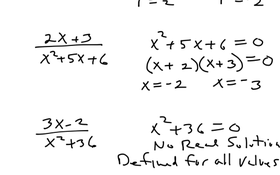 2x+3 / x²+5x+6
x²+5x+6=0
(x+2)(x+3)=0
x=-2 x=-3
3x-2 / x²+36
x²+36=0
No Real Solution
Defined for all values